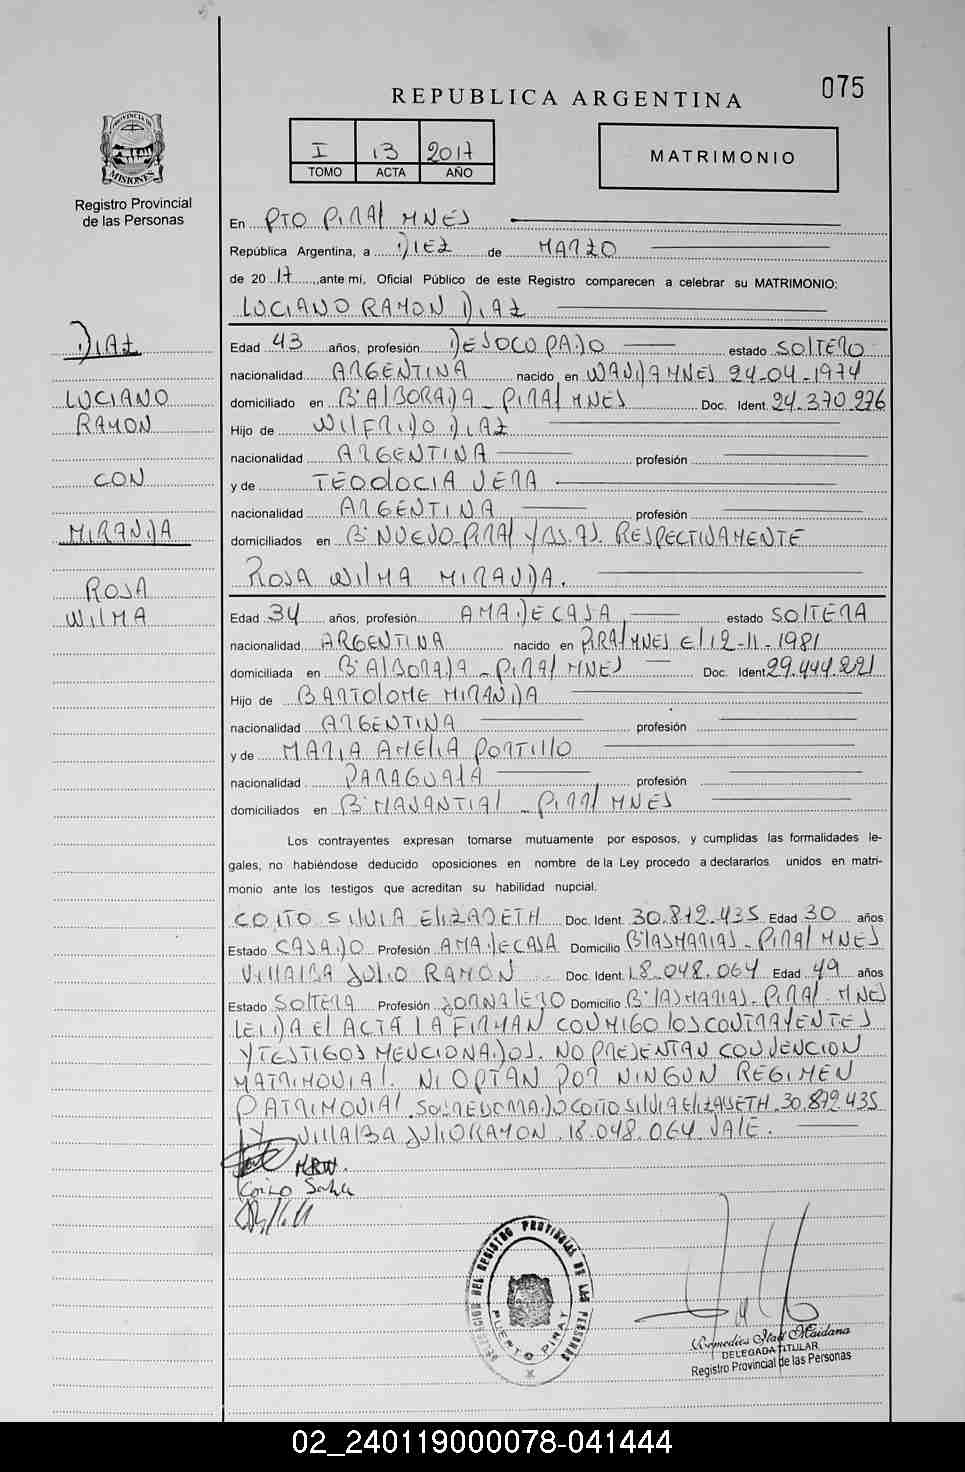 075
REPUBLICA ARGENTINA
I 13 2017
TOMO ACTA AÑO
MATRIMONIO
PROVINCIA DE
MISIONES
Registro Provincial
de las Personas
En PTO PIRAY MNES
República Argentina, a DIEZ de MARZO
de 2017, ante mi, Oficial Público de este Registro comparecen a celebrar su MATRIMONIO:
LUCIANO RAMON DIAZ
DIAZ
LUCIANO
RAMON
CON
MIRANDA
ROSA
WILMA
Edad 43 años, profesión DESOCUPADO estado SOLTERO
nacionalidad ARGENTINA nacido en WANDA MNES 24-04-1974
domiciliado en Bº ALBORADA - PIRAY MNES Doc. Ident. 24.370.276
Hijo de WILFRIDO DIAZ
nacionalidad ARGENTINA profesión
y de TEODOCIA VERA
nacionalidad ARGENTINA profesión
domiciliados en Bº NUEVO-PIRAY Y BS.AS. RESPECTIVAMENTE
ROSA WILMA MIRANDA.
Edad 34 años, profesión AMA DE CASA estado SOLTERA
nacionalidad ARGENTINA nacido en PIRAY MNES El 12-11-1981
domiciliada en Bº ALBORADA - PIRAY MNES Doc. Ident. 29.444.221
Hijo de BARTOLOME MIRANDA
nacionalidad ARGENTINA profesión
y de MARIA AMELIA PORTILLO
nacionalidad PARAGUAYA profesión
domiciliados en Bº MANANTIAL - PIRAY MNES
Los contrayentes expresan tomarse mutuamente por esposos, y cumplidas las formalidades le-
gales, no habiéndose deducido oposiciones en nombre de la Ley procedo a declararlos unidos en matri-
monio ante los testigos que acreditan su habilidad nupcial.
COITO SILVIA ELIZABETH Doc. Ident. 30.812.435 Edad 30 años
Estado CASADO Profesión AMA DE CASA Domicilio Bº LAS MARIAS - PIRAY MNES
VILLALBA JULIO RAMON Doc. Ident. 18.048.064 Edad 49 años
Estado SOLTERA Profesión JORNALERO Domicilio Bº LAS MARIAS - PIRAY - MNES
LEIDA El ACTA LA FIRMAN CONMIGO LOS CONTRAYENTES
Y TESTIGOS MENCIONADOS. NO PRESENTAN CONVENCION
MATRIMONIAL. NI OPTAN POR NINGUN REGIMEN
PATRIMONIAL. SOBREBORRADO COITO SILVIA ELIZABETH. 30.872.435
Y VILLALBA JULIO RAMON. 18.048.064 VALE.
M.R.W.
DELEGACION DEL REGISTRO PROVINCIAL DE LAS PERSONAS
PUERTO PIRAY
Remedios Itatí Maidana
DELEGADA TITULAR
Registro Provincial de las Personas
02_240119000078-041444